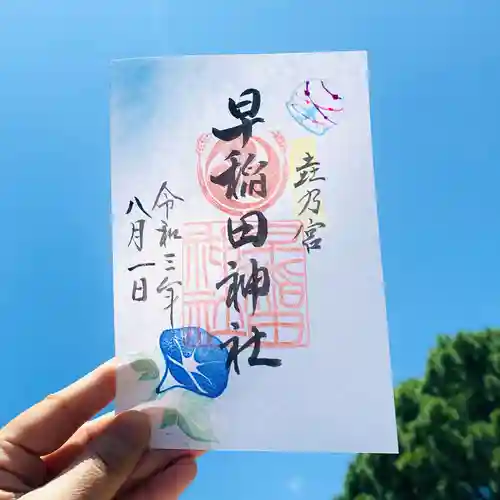 壵乃宮
早稲田神社
令和三年
八月一日